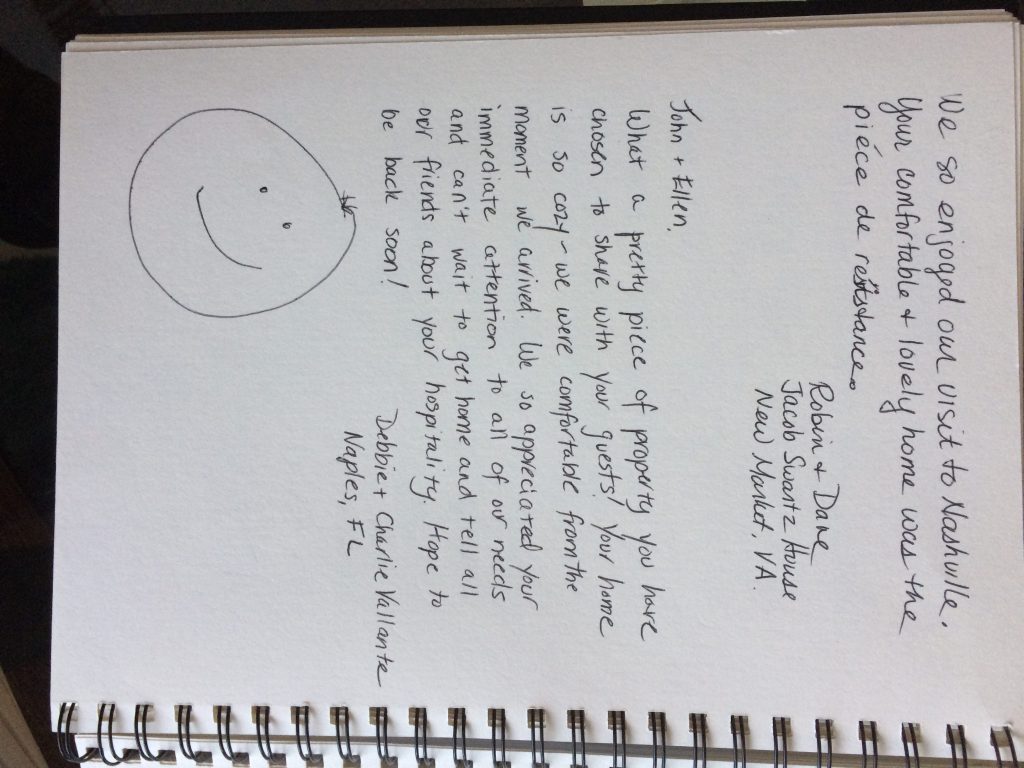 We so enjoyed our visit to Nashville.
Your comfortable & lovely home was the
piéce de resistance.
Robin & Dane
Jacob Swartz House
New Market, VA.
John + Ellen,
What a pretty piece of property you have
chosen to share with your guests! Your home
is so cozy - we were comfortable from the
moment we arrived. We so appreciated your
immediate attention to all of our needs
and can't wait to get home and tell all
our friends about your hospitality. Hope to
be back soon!
Debbie + Charlie Vallante
Naples, FL